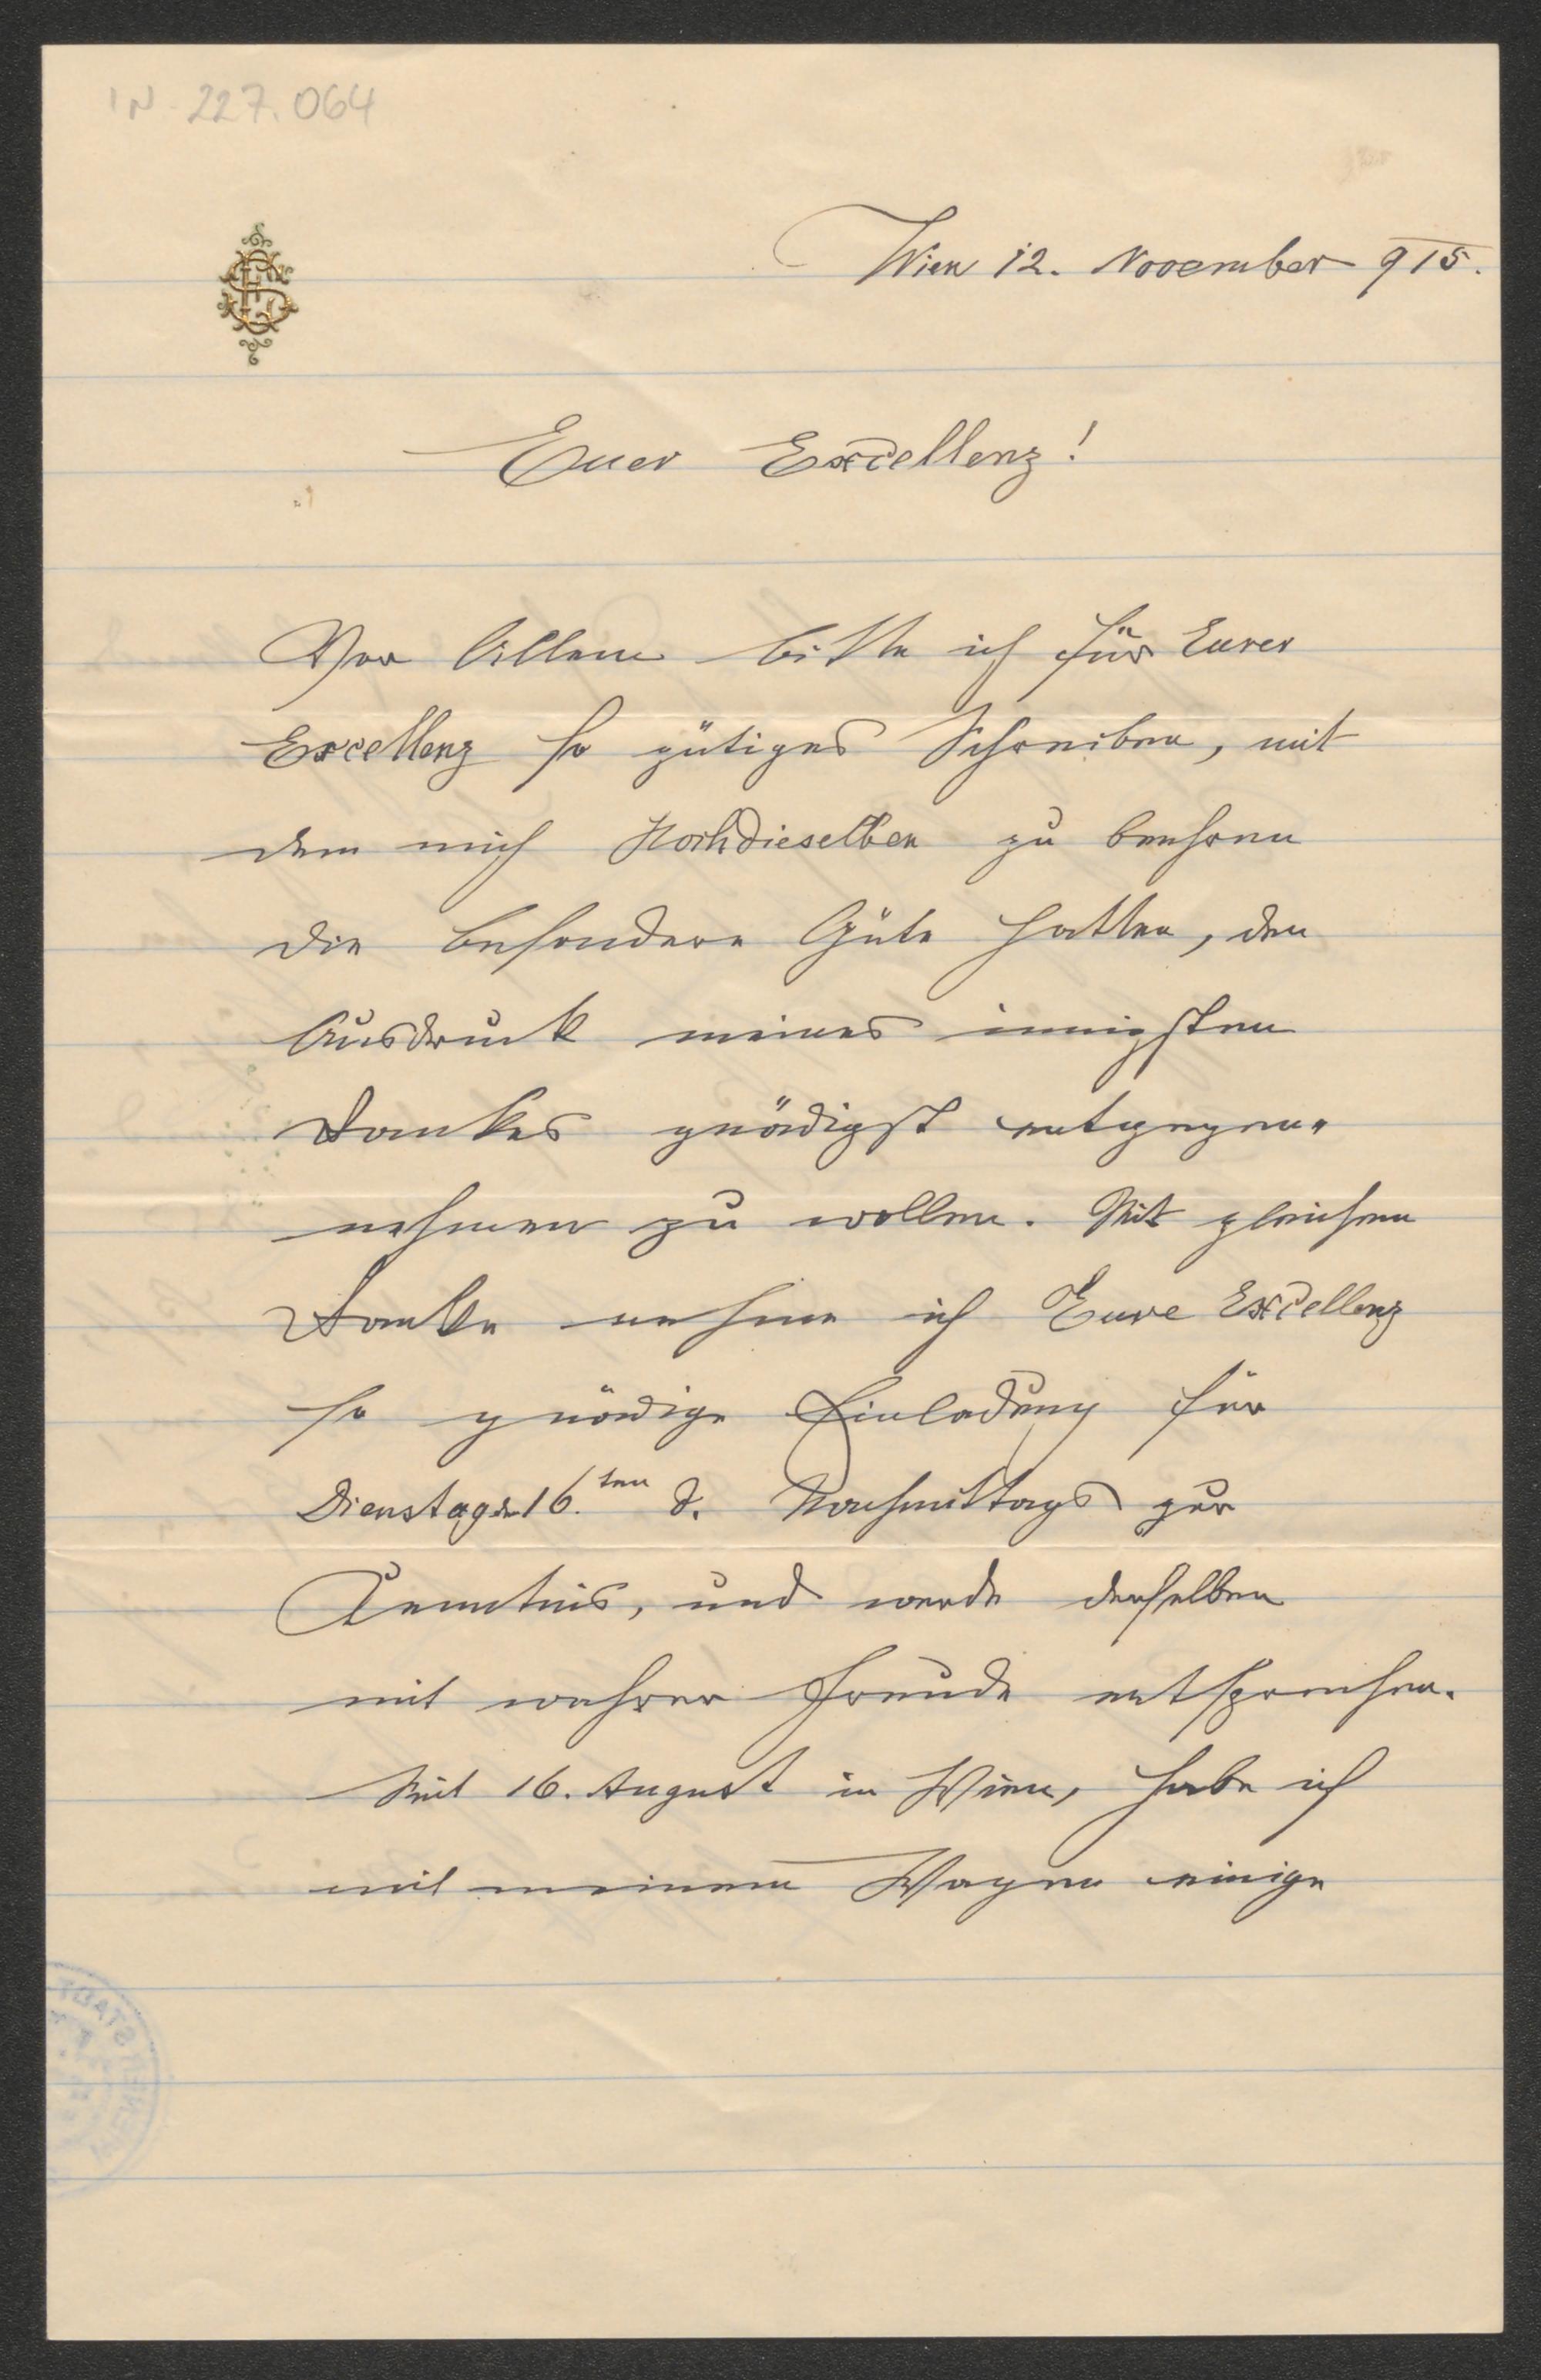 IN 227.064
Wien 12. November 915.
Euer Excellenz!
Vor Allem bitte ich für Eurer
Excellenz so gütiges Schreiben, mit
dem mich Hochdieselben zu beehren
die besondere Güte hatten, den
Ausdruck meines innigsten
Dankes gnädigst entgegen-
nehmen zu wollen. Mit gleichem
Danke nehme ich Eure Excellenz
so gnädige Einladung für
Dienstag 16.ten d. Nachmittags zur
Kenntnis, und werde derselben
mit wahrer Freude entsprechen.
Seit 16. August in Wien, habe ich
mit meinem Wagen einige